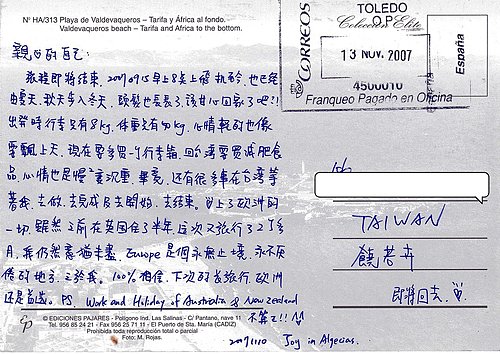 Nº HA/313 Playa de Valdevaqueros – Tarifa y África al fondo.
Valdevaqueros beach – Tarifa and Africa to the bottom.
親愛的自己:
旅程即將結束. 2007/09/15早上8點上俄
由夏天. 秋天步入冬天. 頭髮也長長了. 該甘心回家了吧!!
出發時行李只有8kg. 体重只有40kg. 心情輕的也像
雲飄上天. 現在要多買一行行李箱. 回台灣要買減肥食
品. 心情也是沉重. 畢竟. 還有很多事在台灣等
著我. 去做. 去完成. 去開始. 去結束. 加上歐洲的
一切. 雖然之前在英國住了半年. 這次又旅行了2個多
月. 我仍然意猶未盡. Europe是個永無止境. 永不厭
倦的地方. 之於我. 100%相信. 下次的長旅行. 歐洲
還是首選. PS. Work and Holiday of Australia & New Zealand
不算了!! ^^
20071110 Joy in Algeciras.
© EDICIONES PAJARES - Polígono Ind. Las Salinas - C/ Pantano, nave 11
Tel. 956 85 24 21 - Fax 956 25 71 11 - El Puerto de Sta. María (CADIZ)
Prohibida toda reproducción total o parcial
Foto: M. Rojas.
CORREOS
TOLEDO
O.P.
Colección Elite
13 NOV. 2007
4500010
Franqueo Pagado en Oficina
España
TAIWAN
饒若卉
即將回去.